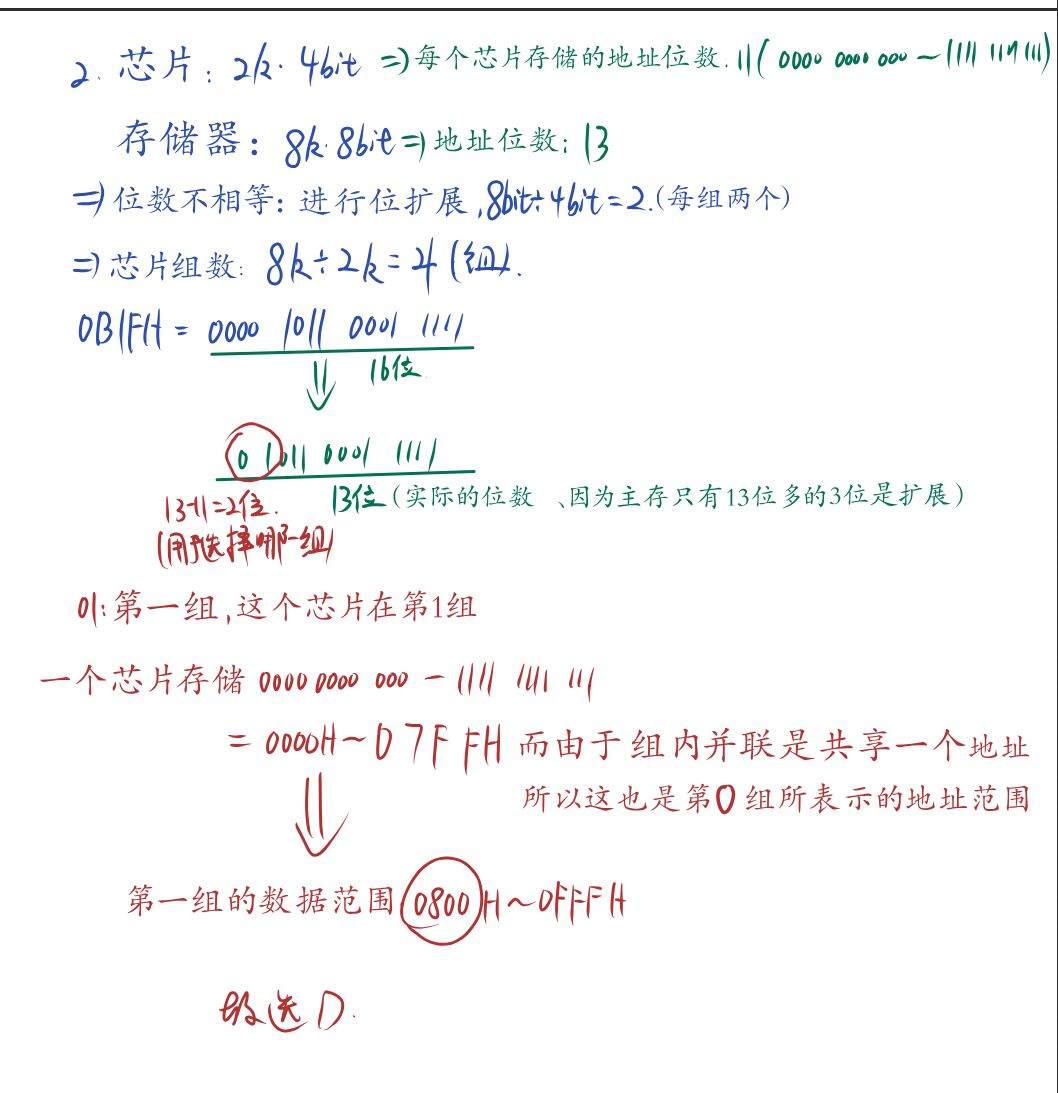 2. 芯片: 2k·4bit ⇒每个芯片存储的地址位数. 11( 0000 0000 000 ~ 1111 1111 111)
存储器: 8k·8bit⇒地址位数: 13
⇒位数不相等: 进行位扩展, 8bit÷4bit=2.(每组两个)
⇒芯片组数: 8k÷2k=4(组).
0B1FH = 0000 1011 0001 1111
⇓ 16位
0 1011 0001 1111
13-11=2位. 13位(实际的位数 、因为主存只有13位多的3位是扩展)
(用于选择哪一组)
01:第一组,这个芯片在第1组
一个芯片存储 0000 0000 000 - 1111 1111 111
= 0000H~07FFH 而由于组内并联是共享一个地址
所以这也是第0组所表示的地址范围
⇓
第一组的数据范围 0800H~0FFFH
故选D.